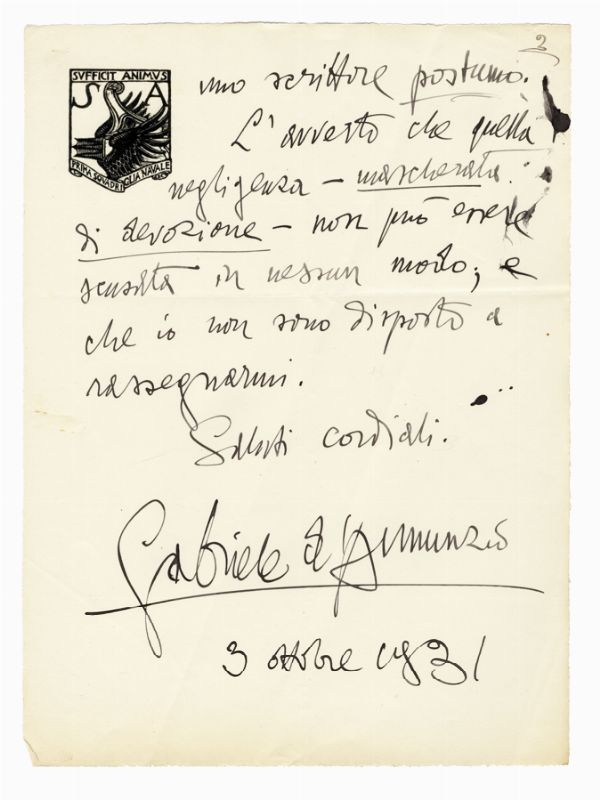 2
SVFFICIT ANIMVS
S A
PRIMA SQVADRIGLIA NAVALE
uno scrittore postumo.
L'avverto che quella
negligenza – mascherata
di devozione – non può essere
scusata in nessun modo; e
che io non sono disposto a
rassegnarmi.
Saluti cordiali.
Gabriele d'Annunzio
3 ottobre 1931